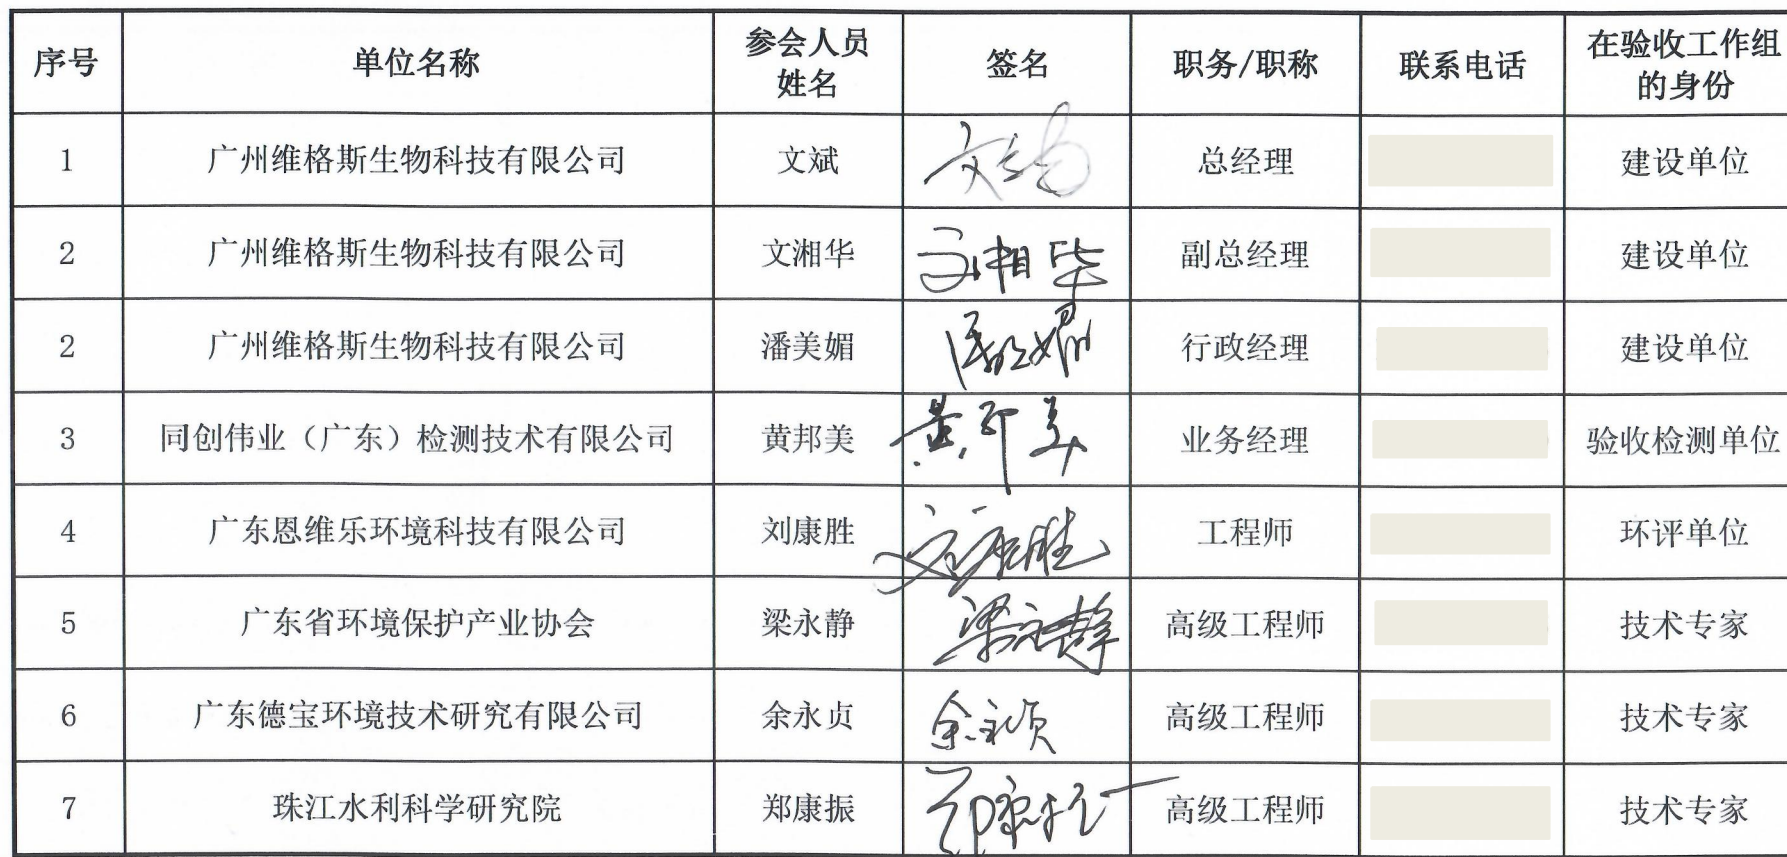 序号 单位名称 参会人员姓名 签名 职务/职称 联系电话 在验收工作组的身份
1 广州维格斯生物科技有限公司 文斌 总经理 建设单位
2 广州维格斯生物科技有限公司 文湘华 文湘华 副总经理 建设单位
2 广州维格斯生物科技有限公司 潘美媚 行政经理 建设单位
3 同创伟业（广东）检测技术有限公司 黄邦美 黄邦美 业务经理 验收检测单位
4 广东恩维乐环境科技有限公司 刘康胜 刘康胜 工程师 环评单位
5 广东省环境保护产业协会 梁永静 梁永静 高级工程师 技术专家
6 广东德宝环境技术研究有限公司 余永贞 余永贞 高级工程师 技术专家
7 珠江水利科学研究院 郑康振 郑康振 高级工程师 技术专家